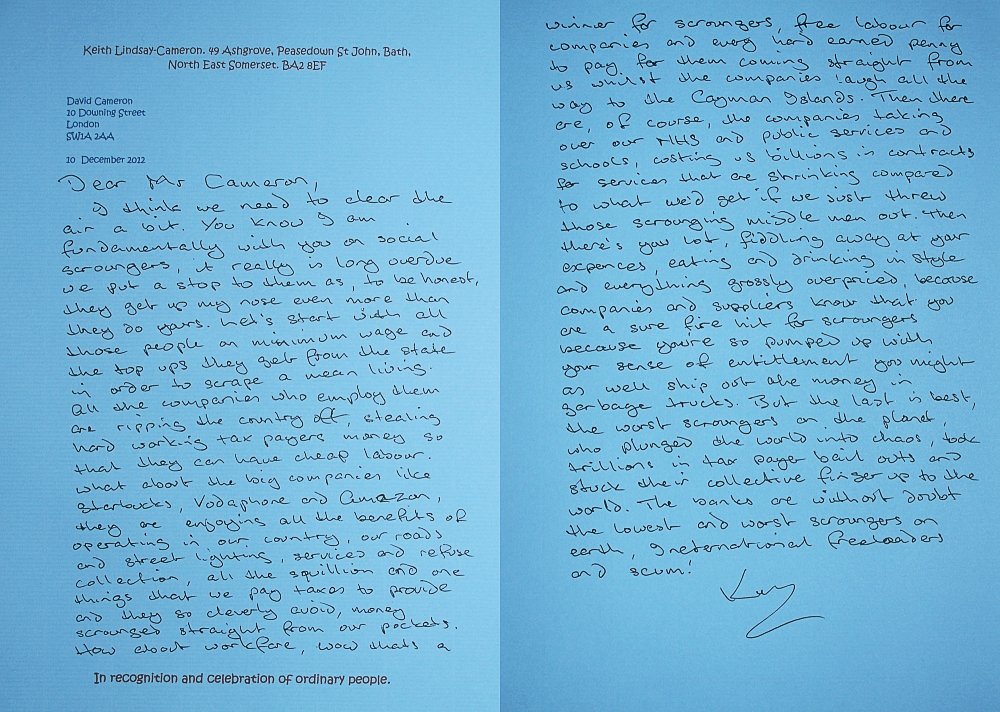 Keith Lindsay-Cameron. 49 Ashgrove, Peasedown St John, Bath,
North East Somerset. BA2 8EF
David Cameron
10 Downing Street
London
SW1A 2AA
10 December 2012
Dear Mr Cameron,
I think we need to clear the
air a bit. You know I am
fundamentally with you on social
scroungers, it really is long overdue
we put a stop to them as, to be honest,
they get up my nose even more than
they do yours. Let's start with all
those people on minimum wage and
the top ups they get from the state
in order to scrape a mean living.
All the companies who employ them
are ripping the country off, stealing
hard working tax payers money so
that they can have cheap labour.
What about the big companies like
Starbucks, Vodaphone and Amazon,
they are enjoying all the benefits of
operating in our country, our roads
and street lighting, services and refuse
collection, all the squillion and one
things that we pay taxes to provide
and they so cleverly avoid, money
scrounged straight from our pockets.
How about workfare, wow thats a
In recognition and celebration of ordinary people.
winner for scroungers, free labour for
companies and every hard earned penny
to pay for them coming straight from
us whilst the companies laugh all the
way to the Cayman Islands. Then there
are, of course, the companies taking
over our NHS and public services and
schools, costing us billions in contracts
for services that are shrinking compared
to what we'd get if we just threw
those scrounging middle men out. Then
there's you lot, fiddling away at your
expences, eating and drinking in style
and everything grossly overpriced, because
companies and suppliers know that you
are a sure fire hit for scroungers
because you're so pumped up with
your sense of entitlement you might
as well ship out the money in
garbage trucks. But the last is best,
the worst scroungers on the planet,
who plunged the world into chaos, took
trillions in tax payer bail outs and
stuck their collective finger up to the
world. The banks are without doubt
the lowest and worst scroungers on
earth, International freeloaders
and scum!